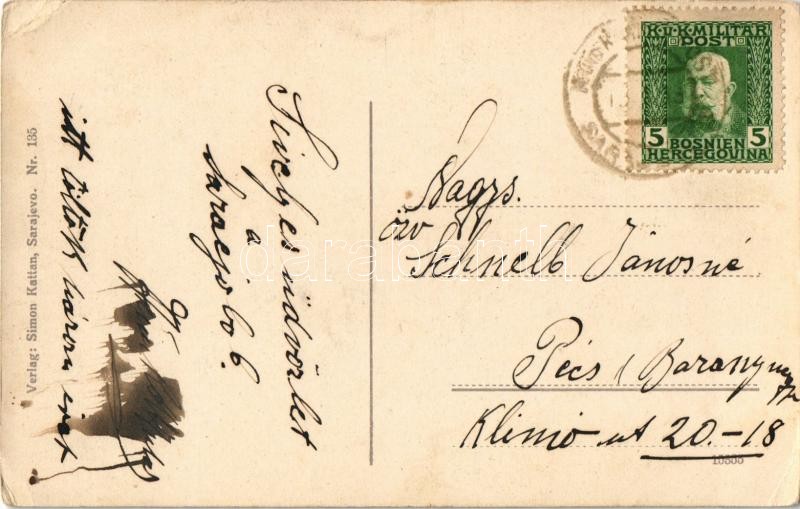 K.u.K. MILITÄR
POST
5 BOSNIEN 5
HERCEGOVINA
SAR
Szivelyes üdvözlet
a
Sarajobol.
itt töltök három órát
Nagys.
özv
Schnell Jánosné
Pécs (Baranya
Klimó ut 20.-18
Verlag: Simon Kattan, Sarajevo. Nr. 135
darabanth